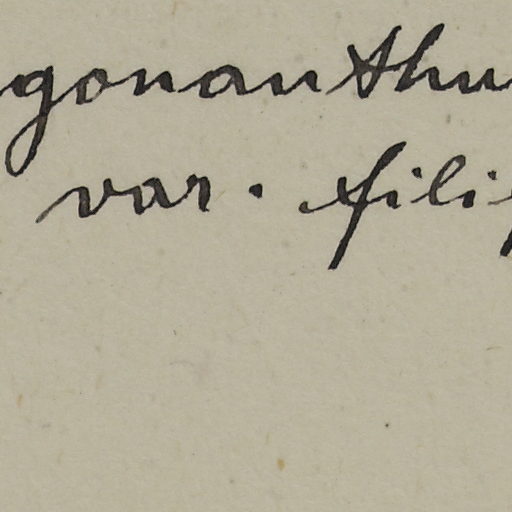 gonanthu
var. fili